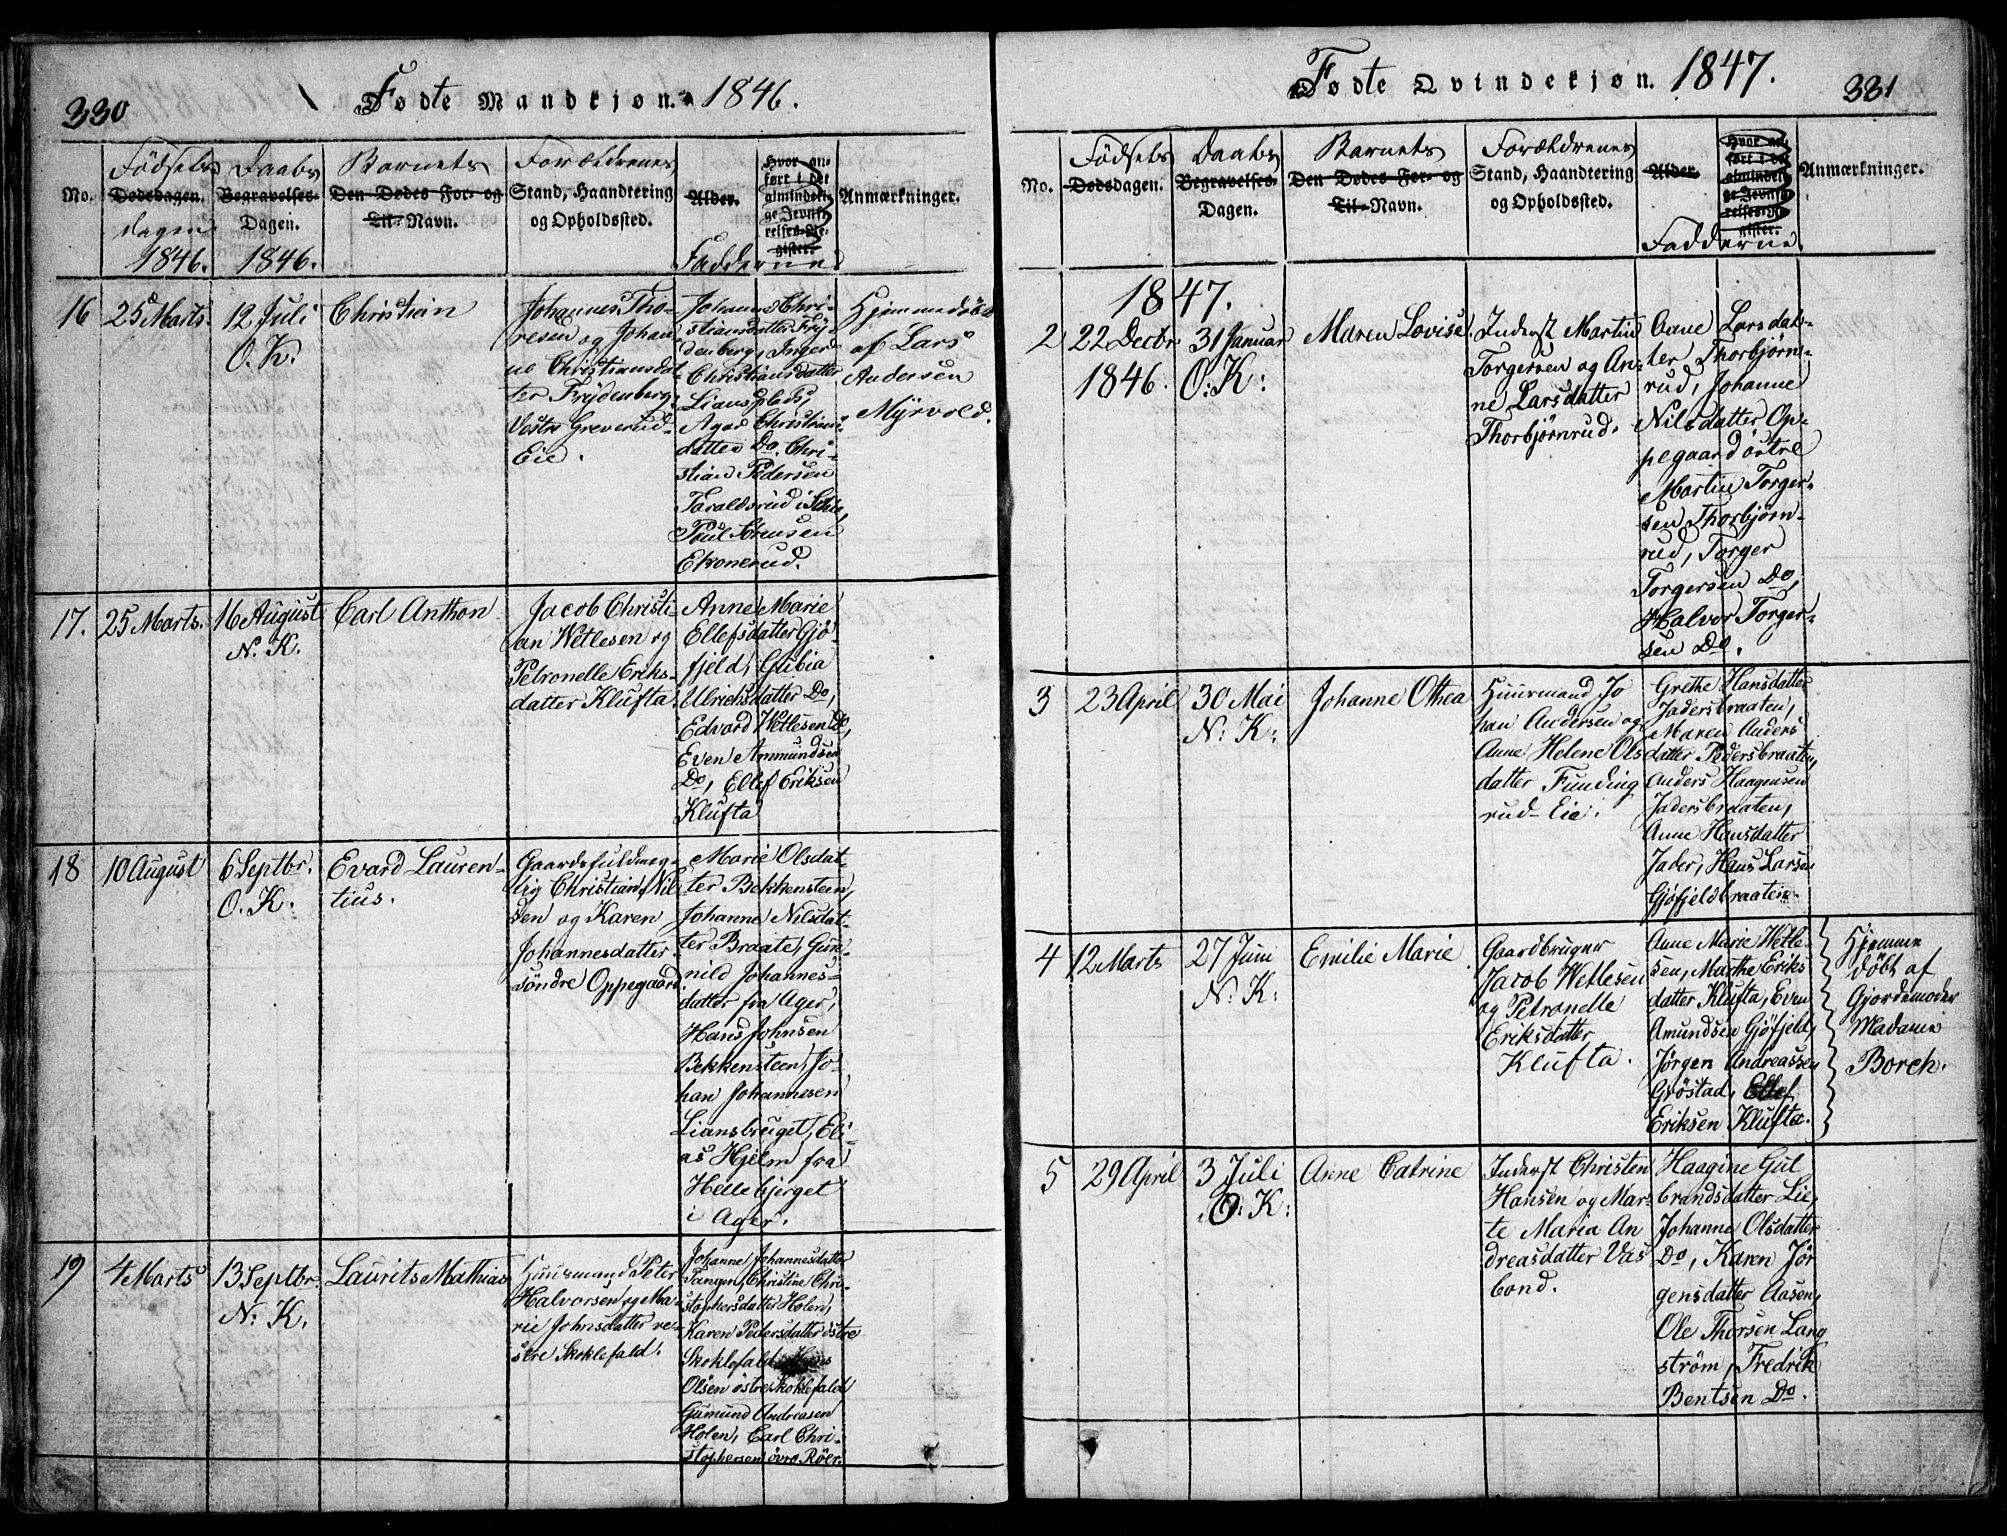 330
Fødte Mandkjøn. 1846.
No.
Födsels
Dødsdagen.
dagen
1846.
Daabs
Begravelses-
Dagen.
1846.
Barnets
Den Dødes For- og
Til-Navn.
Forældrenes
Stand, Haandtering
og Opholdssted.
Alder.
Hvor an-
ført i det
almindeli-
ge Jevnfø-
relses-Re-
gister.
Fadderne.
Anmærkninger.
16
25 Marts.
12 Juli
O. K.
Christian
Johannes Tho-
resen og Johan-
ne Christiansdat-
ter Frydenberg,
Vestre Greverud-
Eie.
Johanne Chri-
stiansdatter Fry-
denberg, Inger
Christiansdatter
Liansplads,
Agar Christians-
datter Do, Chri-
stian Pedersen
Taraldsrud i Skie,
Poul Sørensen
Ekornrud.
Hjemmedöbt
af Lars
Andersen
Myrvold.
17.
25 Marts.
16 August
N. K.
Carl Anthon
Jacob Christi-
an Wetlesen og
Petronelle Eriks-
datter Klufta.
Anne Marie
Ellefsdatter Gjö-
fjeld, Gubia
Ulrichsdatter Do,
Edvard Wetlesen Do,
Even Ammundsen
Do, Ellef Eriksen
Klufta
18
10 August
6 Septbr.
O. K.
Evard Lauren-
tius.
Gaardsfuldmæg-
tig Christian Nil-
sen og Karen
Johannesdatter
söndre Oppegaard.
Marie Olsdat-
ter Bekkensteen,
Johanne Nilsdat-
ter Braate, Gun-
nild Johannes-
datter fra Ager,
Hans Johnsen
Bekkensteen, Jo-
han Johannesen
Liansbruget, Eli-
as Hjelm fra
Hellebjerget
i Ager.
19
4 Marts
13 Septbr.
N. K.
Laurits Mathias
Huusmand Peter
Halvorsen og Ma-
rie Johnsdatter ve-
stre Skoklefald.
Johanne Johannesdatter
Tangen, Christine Chri-
stophersdatter Holen,
Karen Pedersdatter östre
Skoklefald, Hans
Olsen östre Skoklefald
Gumund Andreasen
Holen, Carl Chri-
stophersen övre Röer.
Fødte Qvindekjøn. 1847.
331
No.
Födsels
Dødsdagen.
Daabs
Begravelses-
Dagen.
Barnets
Den Dødes For- og
Til-Navn.
Forældrenes
Stand, Haandtering
og Opholdssted.
Alder.
Hvor an-
ført i det
almindeli-
ge Jevnfø-
relses-Re-
gister.
Fadderne.
Anmærkninger.
1847.
2
22 Decbr
1846.
31 Januar
O: K:
Maren Lovise.
Inderst Martin
Torgersen og An-
ne Larsdatter
Thorbjørnrud.
Anne Larsdat-
ter Thorbjørn-
rud, Johanne
Nilsdatter Op-
pegaard östre
Martin Torger-
sen Thorbjørn-
rud, Torger
Torgersen Do,
Halvor Torger-
sen Do.
3
23 April
30 Mai
N: K:
Johanne Othea
Huusmand Jo
han Andersen og
Anne Helene Ols
datter Funding
rud-Eie.
Grethe Hansdatter
Jadersbraaten,
Maren Anders
datter Pedersbraaten,
Anders Haagensen
Jadersbraaten,
Anne Hansdatter
Jader, Hans Larsen
Gjøfjeldbraaten.
4
12 Marts
27 Juni
N: K:
Emilie Marie
Gaardbruger
Jacob Wetlesen
og Petronelle
Eriksdatter
Klufta.
Anne Marie Wetle-
sen, Marthe Eriks
datter Klufta, Even
Amundsen Gjøfjeld,
Jørgen Andreassen
Grøstad, Ellef
Eriksen Klufta.
Hjemme
döbt af
Gjordemoder
Madame
Borch.
5
29 April
3 Juli
O: K:
Anne Catrine
Inderst Christen
Hansen og Mar-
te Maria An
dreasdatter Vas
bond.
Haagine Gul
brandsdatter Lie,
Johanne Olsdatter
Do, Karen Jör
gensdatter Aasen,
Ole Thorsen Lang
ström, Fredrik
Bentsen Do.